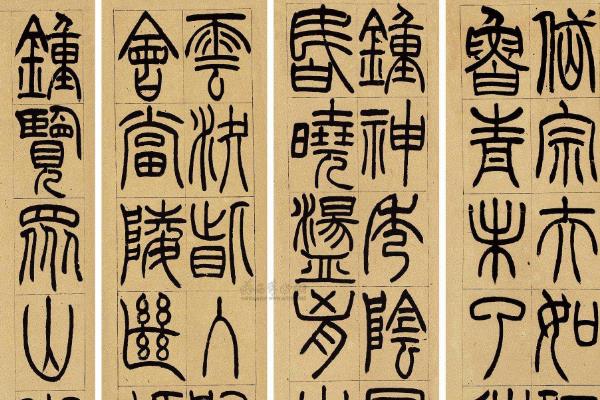 岱宗夫如
魯青未了
鍾神秀陰
昏曉盪胸
雲決眥入
會當陵絕
鍾覽眾山